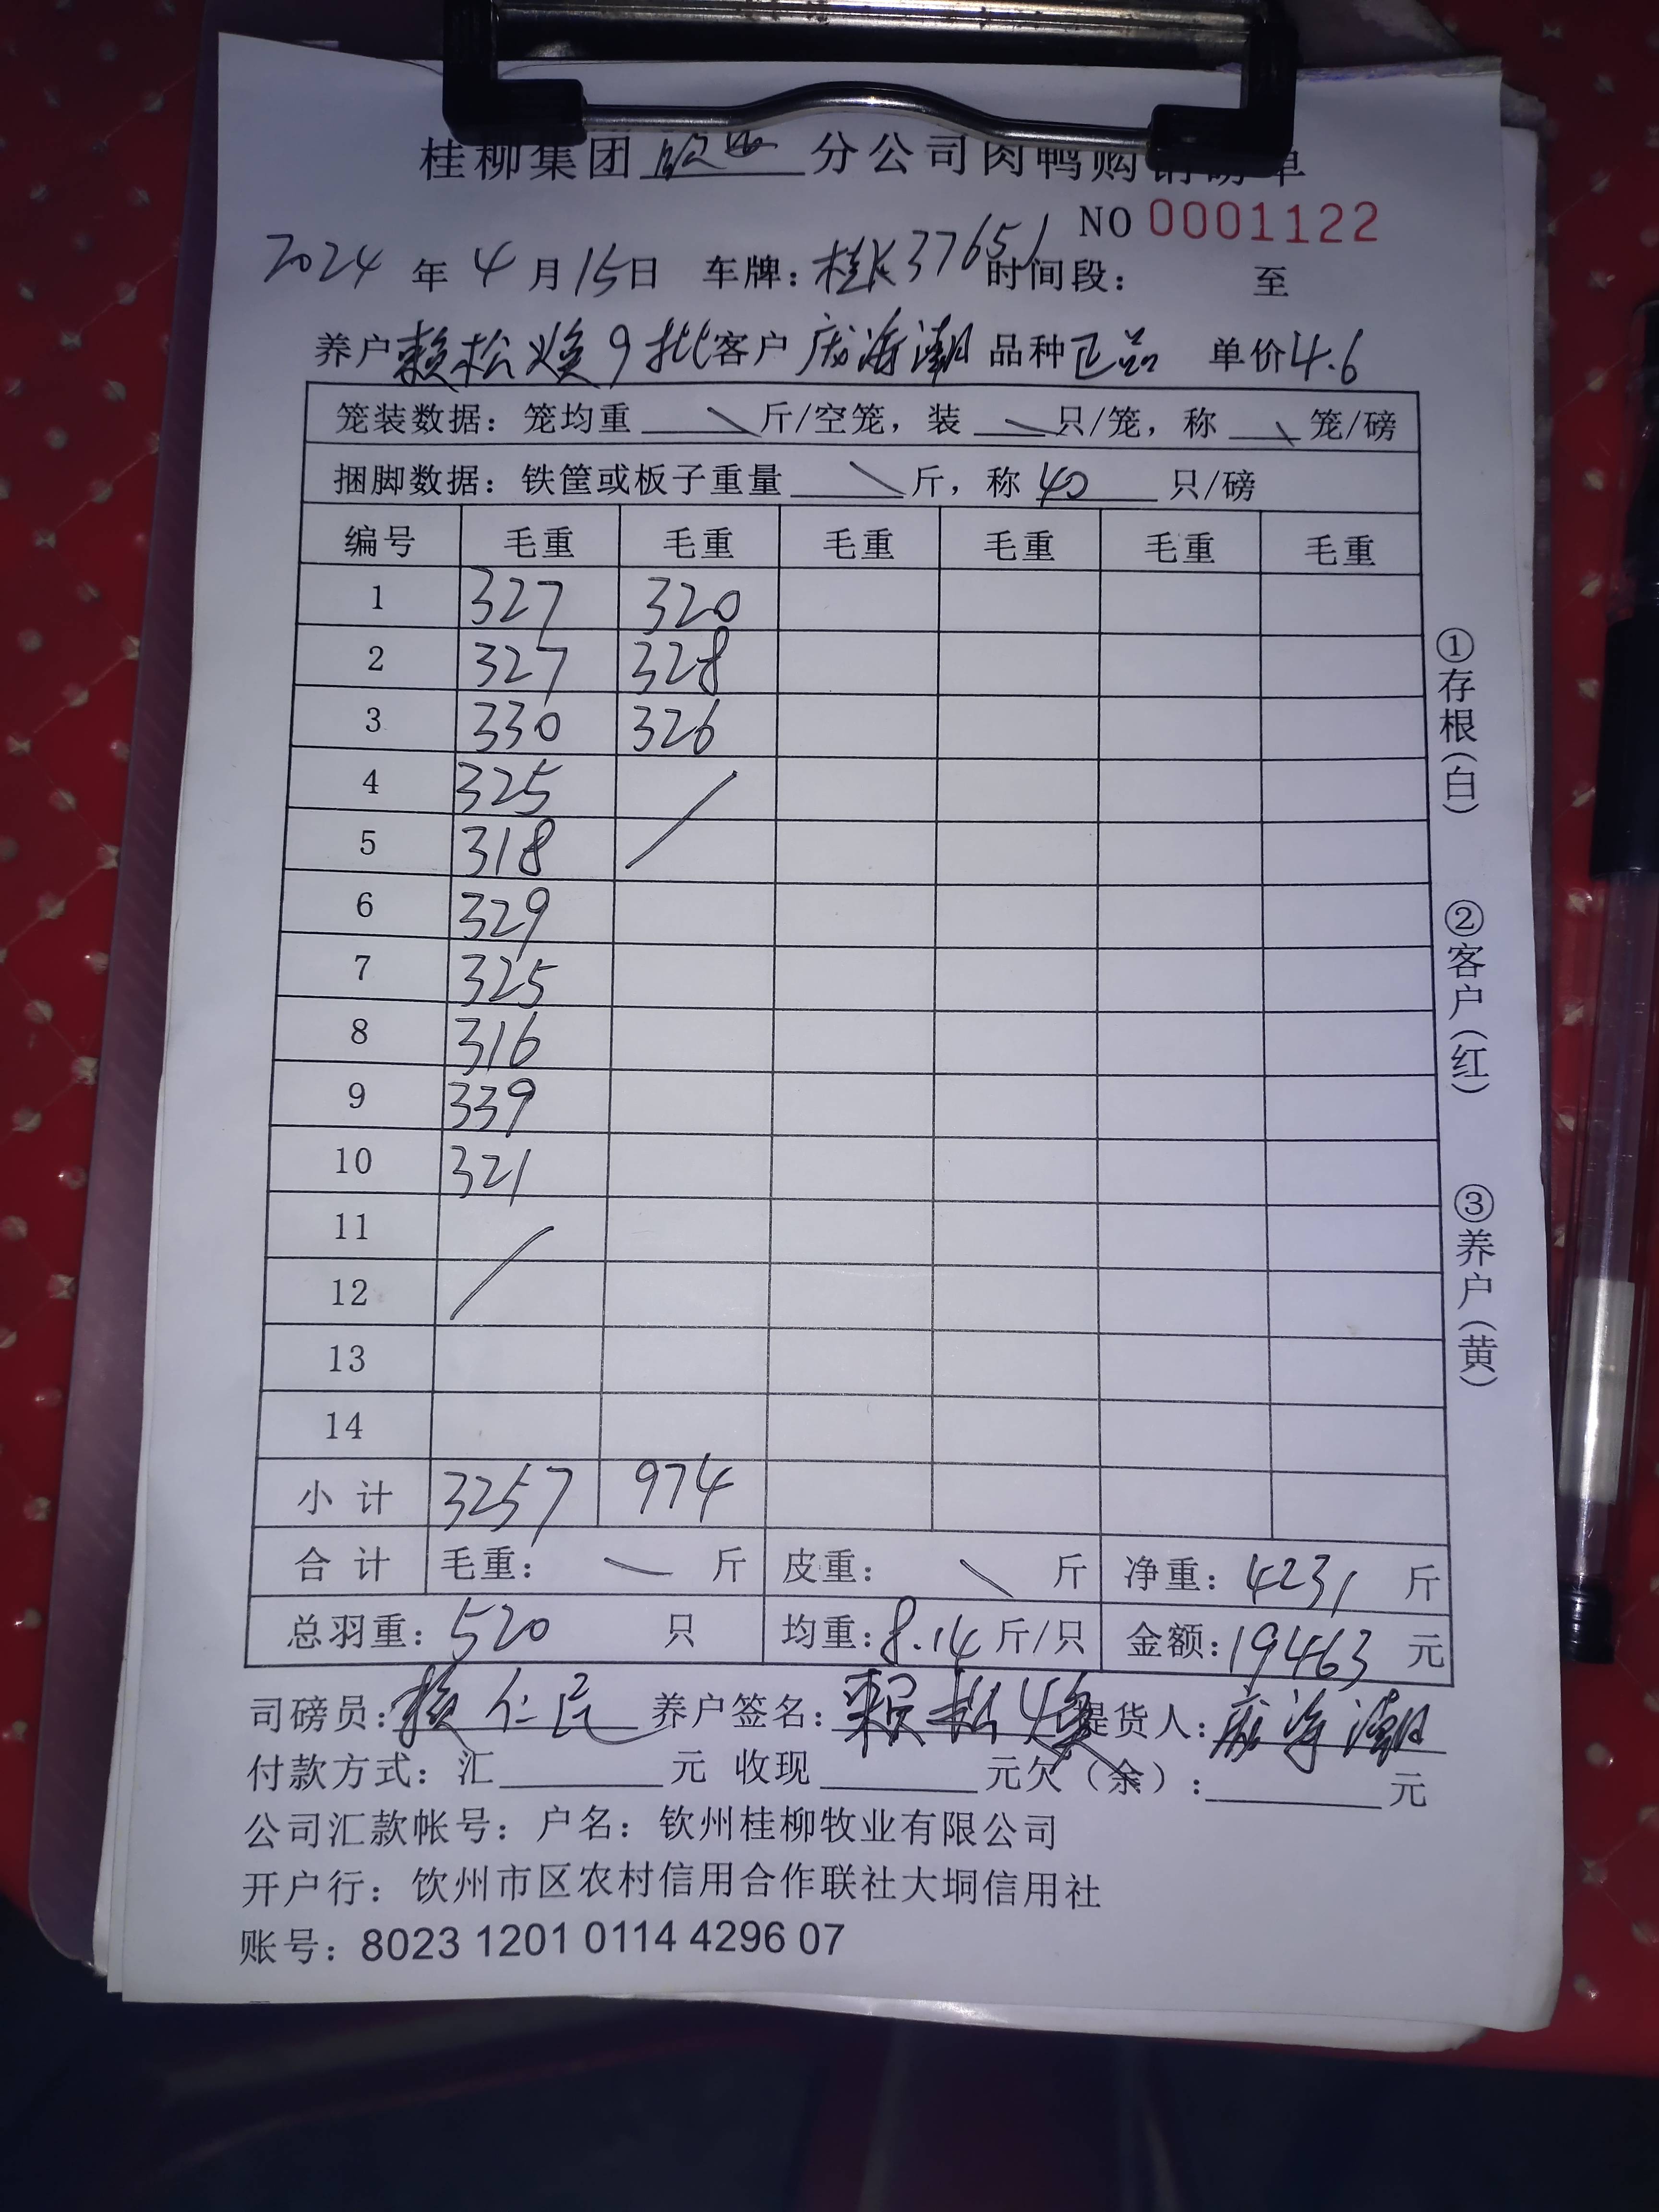 桂柳集团 钦州 分公司肉鸭购销磅单
NO 0001122
2024 年 4 月 15 日 车牌：桂K37651 时间段： 至
养户 赖松焕9批 客户 庞海潮 品种 正品 单价 4.6
笼装数据：笼均重 斤/空笼，装 只/笼，称 笼/磅
捆脚数据：铁筐或板子重量 斤，称 40 只/磅
编号 毛重 毛重 毛重 毛重 毛重 毛重
1 327 320
2 327 328
3 330 326
4 325
5 318
6 329
7 325
8 316
9 339
10 321
11
12
13
14
小计 3257 974
合计 毛重： 斤 皮重： 斤 净重：4231 斤
总羽重：520 只 均重：8.14 斤/只 金额：19463 元
司磅员：仁民 养户签名：赖松焕 提货人：庞海潮
付款方式：汇 元 收现 元欠（余）： 元
公司汇款帐号：户名：钦州桂柳牧业有限公司
开户行：钦州市区农村信用合作联社大垌信用社
账号：8023 1201 0114 4296 07
①存根（白）
②客户（红）
③养户（黄）